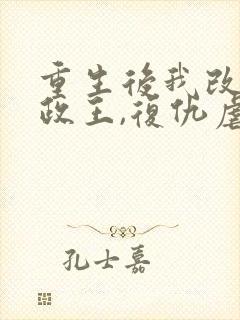 重生後我改
政王,復仇虐
孔士嘉